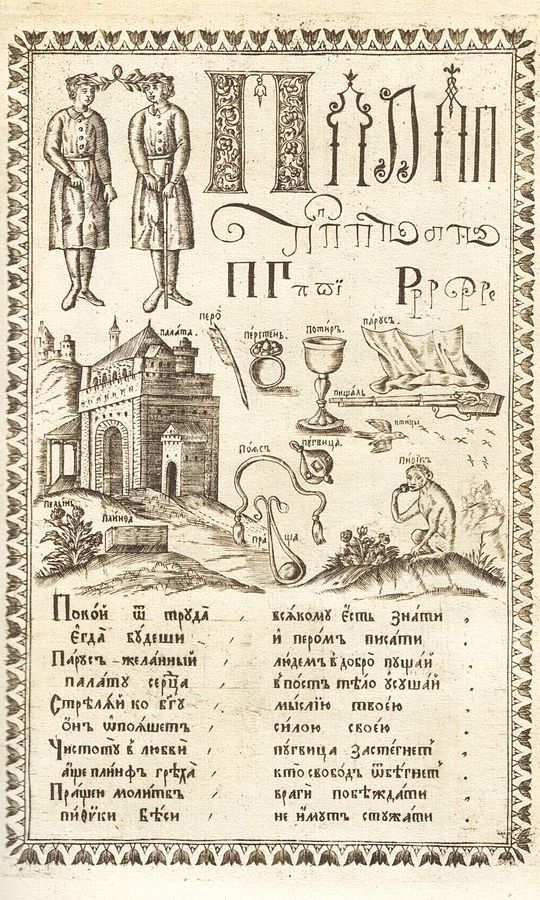 П П П П П
п п п п
П Г п ѿ ї Р р р р р е
перо̀
перстень
потиръ
парусъ
пала́та
пищаль
птицы
пугвица
Поѧсъ
пиѳїкъ
пелынь
плинѳа
праща
Поко́й ѿ труда̀ , всѧкому є҆сть зна́ти ,
є҆гда̀ бу́деши , и҆ перо́мъ писа́ти ,
Па́русъ желанный , лю́демъ в̾добро̀ пуща́й ,
пала́ту се́рдца , в̾по́стъ тѣ́ло ѹсуша́й .
Стрѣлѧ́й ко бг҃у , мы́слїю твоє́ю .
ѻ҆́нъ ѡ҆поѧ́шетъ , си́лою своє́ю .
Чистоту̀ в̾ любвѝ , пу́гвица засте́гнетъ .
а҆́ще пли́нѳъ грѣха̀ , кто̀ свобо́дъ ѿбѣ́гнетъ .
Пра́щею моли́твъ , врагѝ побѣжда́ти .
пиѳи́ки бѣ́си не и҆́мутъ стужа́ти .